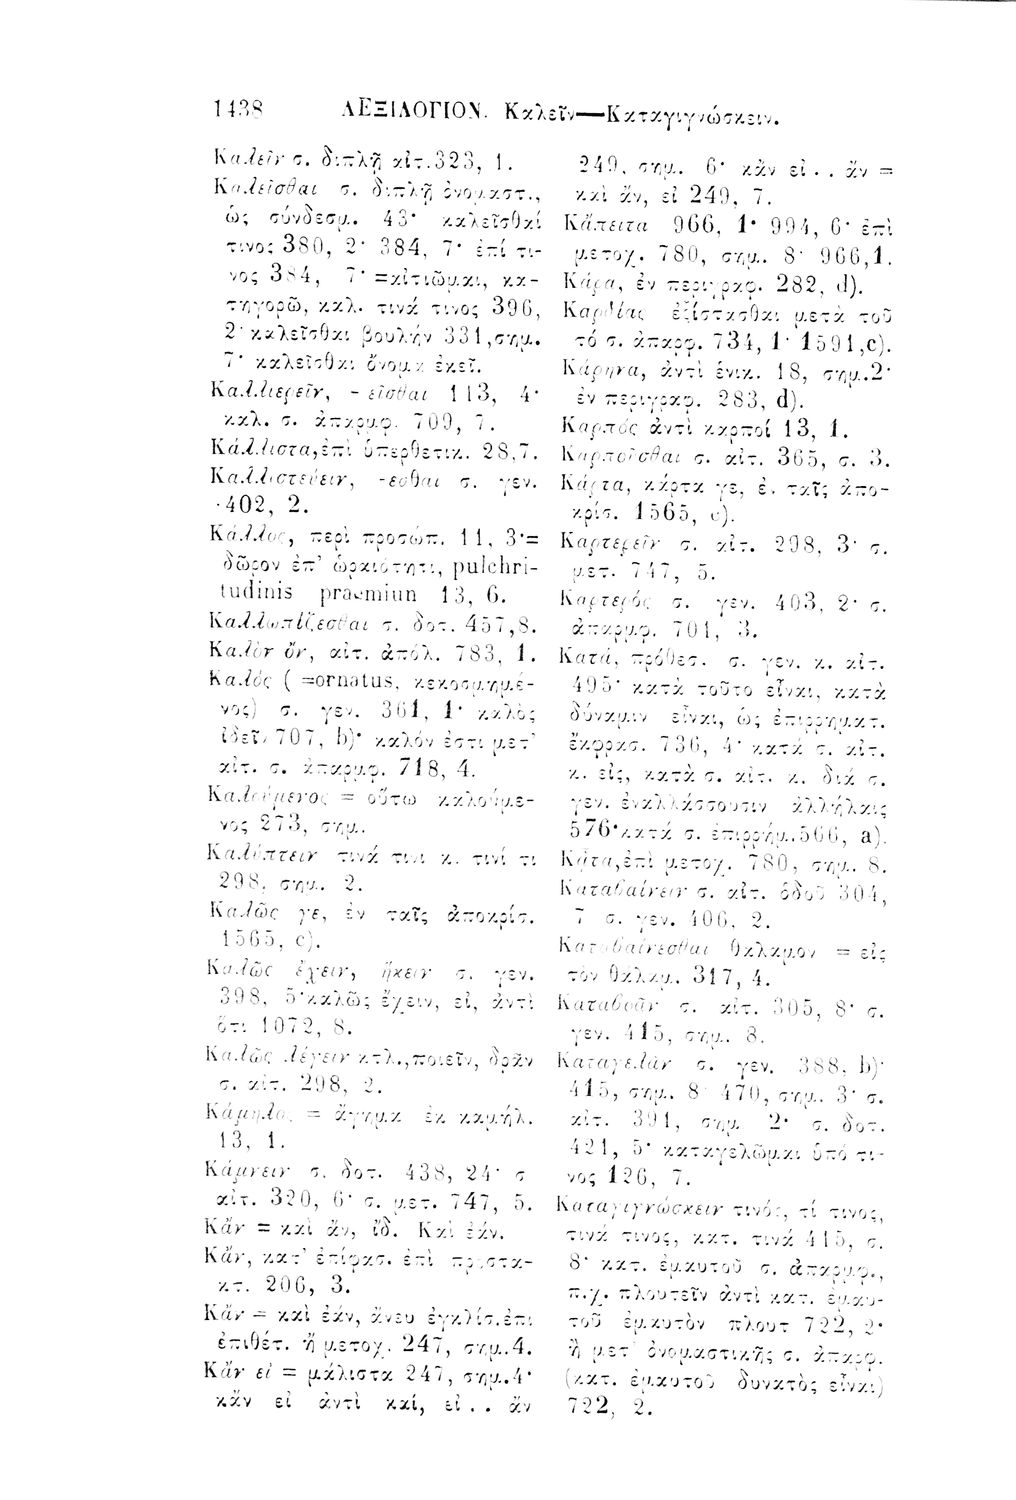 1438 ΛΕΞΙΛΟΓΙΟΝ. Καλεῖν—Καταγιγνώσκειν.
Καλεῖν σ. διπλῇ αἰτ.323, 1.
Καλεῖσθαι σ. διπλῇ ὀνομαστ.,
ὡς σύνδεσμ. 43· καλεῖσθαί
τινος 380, 2· 384, 7· ἐπί τι-
νος 384, 7· =αἰτιῶμαι, κα-
τηγορῶ, καλ. τινά τινος 396,
2· καλεῖσθαι βουλήν 331,σημ.
7· καλεῖσθαι ὄνομα ἐκεῖ.
Καλλιερεῖν, -εῖσθαι 113, 4·
καλ. σ. ἀπαρμφ. 709, 7.
Κάλλιστα,ἐπὶ ὑπερθετικ. 28,7.
Καλλιστεύειν, -εσθαι σ. γεν.
402, 2.
Κάλλος, περὶ προσώπ. 11, 3·=
δῶρον ἐπ' ὡραιότητι, pulchri-
tudinis praemiun 13, 6.
Καλλωπίζεσθαι σ. δοτ. 457,8.
Καλὸν ὄν, αἰτ. ἀπόλ. 783, 1.
Καλός ( =ornatus, κεκοσμημέ-
νος) σ. γεν. 361, 1· καλὸς
ἰδεῖν 707, b)· καλόν ἐστι μετ'
αἰτ. σ. ἀπαρμφ. 718, 4.
Καλούμενος = οὕτω καλούμε-
νος 273, σημ.
Καλύπτειν τινά τινι κ. τινί τι
298, σημ. 2.
Καλῶς γε, ἐν ταῖς ἀποκρίσ.
1565, c).
Καλῶς ἔχειν, ἥκειν σ. γεν.
398, 5·καλῶς ἔχειν, εἰ, ἀντὶ
ὅτι 1072, 8.
Καλῶς λέγειν κτλ.,ποιεῖν, δρᾶν
σ. αἰτ. 298, 2.
Κάμηλος = ἄγημα ἐκ καμήλ.
13, 1.
Κάμνειν σ. δοτ. 438, 24· σ
αἰτ. 320, 6· σ. μετ. 747, 5.
Κἄν = καὶ ἄν, ἰδ. Καὶ ἐάν.
Κἄν, κατ' ἐπίφασ. ἐπὶ προστα-
κτ. 206, 3.
Κἄν = καὶ ἐάν, ἄνευ ἐγκλίσ.ἐπι
ἐπιθέτ. ἤ μετοχ. 247, σημ.4.
Κἄν εἰ = μάλιστα 247, σημ.4·
κἄν εἰ ἀντὶ καί, εἰ.. ἄν
249, σημ. 6· κἄν εἰ.. ἄν =
καὶ ἄν, εἰ 249, 7.
Κἄπειτα 966, 1· 994, 6· ἐπὶ
μετοχ. 780, σημ. 8· 966,1.
Κάρα, ἐν περιγραφ. 282, d).
Καρδίας ἐξίστασθαι μετὰ τοῦ
τό σ. ἀπαρφ. 734, 1· 1591,c).
Κάρηνα, ἀντὶ ἑνικ. 18, σημ.2·
ἐν περιγραφ. 283, d).
Καρπός ἀντὶ καρποί 13, 1.
Καρποῦσθαι σ. αἰτ. 365, σ. 3.
Κάρτα, κάρτα γε, ἐ. ταῖς ἀπο-
κρίσ. 1565, c).
Καρτερεῖν σ. αἰτ. 298, 3· σ.
μετ. 747, 5.
Καρτερός σ. γεν. 403, 2· σ.
ἀπαρμφ. 701, 3.
Κατά, πρόθεσ. σ. γεν. κ. αἰτ.
495· κατὰ τοῦτο εἶναι, κατὰ
δύναμιν εἶναι, ὡς ἐπιρρηματ.
ἔκφρασ. 736, 4· κατά σ. αἰτ.
κ. εἰς, κατὰ σ. αἰτ. κ. διά σ.
γεν. ἐναλλάσσουσιν ἀλλήλαις
576·κατά σ. ἐπιρρήμ.566, a).
Κᾆτα,ἐπὶ μετοχ. 780, σημ. 8.
Καταβαίνειν σ. αἰτ. ὁδοῦ 304,
7 σ. γεν. 406, 2.
Καταβαίνεσθαι θαλαμον = εἰς
τὸν θαλαμ. 317, 4.
Καταβοᾶν σ. αἰτ. 305, 8· σ.
γεν. 415, σημ. 8.
Καταγελᾶν σ. γεν. 388, b)·
415, σημ. 8· 470, σημ. 3· σ.
αἰτ. 391, σημ. 2· σ. δοτ.
421, 5· καταγελῶμαι ὑπό τι-
νος 126, 7.
Καταγιγνώσκειν τινός, τί τινος,
τινά τινος, κατ. τινά 415, σ.
8· κατ. ἐμαυτοῦ σ. ἀπαρμφ.,
π.χ. πλουτεῖν ἀντὶ κατ. ἐμαυ-
τοῦ ἐμαυτὸν πλουτ 722, 2·
ἢ μετ' ὀνομαστικῆς σ. ἀπαρφ.
(κατ. ἐμαυτοῦ δυνατὸς εἶναι)
722, 2.